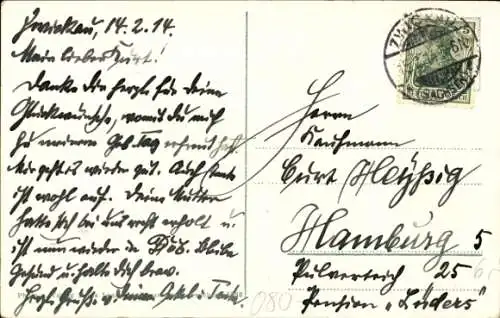 Zwickau, 14.2.14.
Mein lieber Kurt!
Danke Dir herzl. für Deine
Glückwünsche, womit Du mich
zu meinem Geb. Tag erfreut hast.
geht es wieder gut. Auch Tante
ist wohl auf. Deine Mutter
hatte sich bei uns recht erholt u.
ist nun wieder in Bleibe
Gesund u. halte Dich brav.
Herzl. Grüße v. Deinem Onkel u. Tante.
ZWICKAU
(SACHSEN)
Herrn
Kaufmann
Curt Heyßig
Hamburg 5
Pulverteich 25
Pension „Lüders"
080